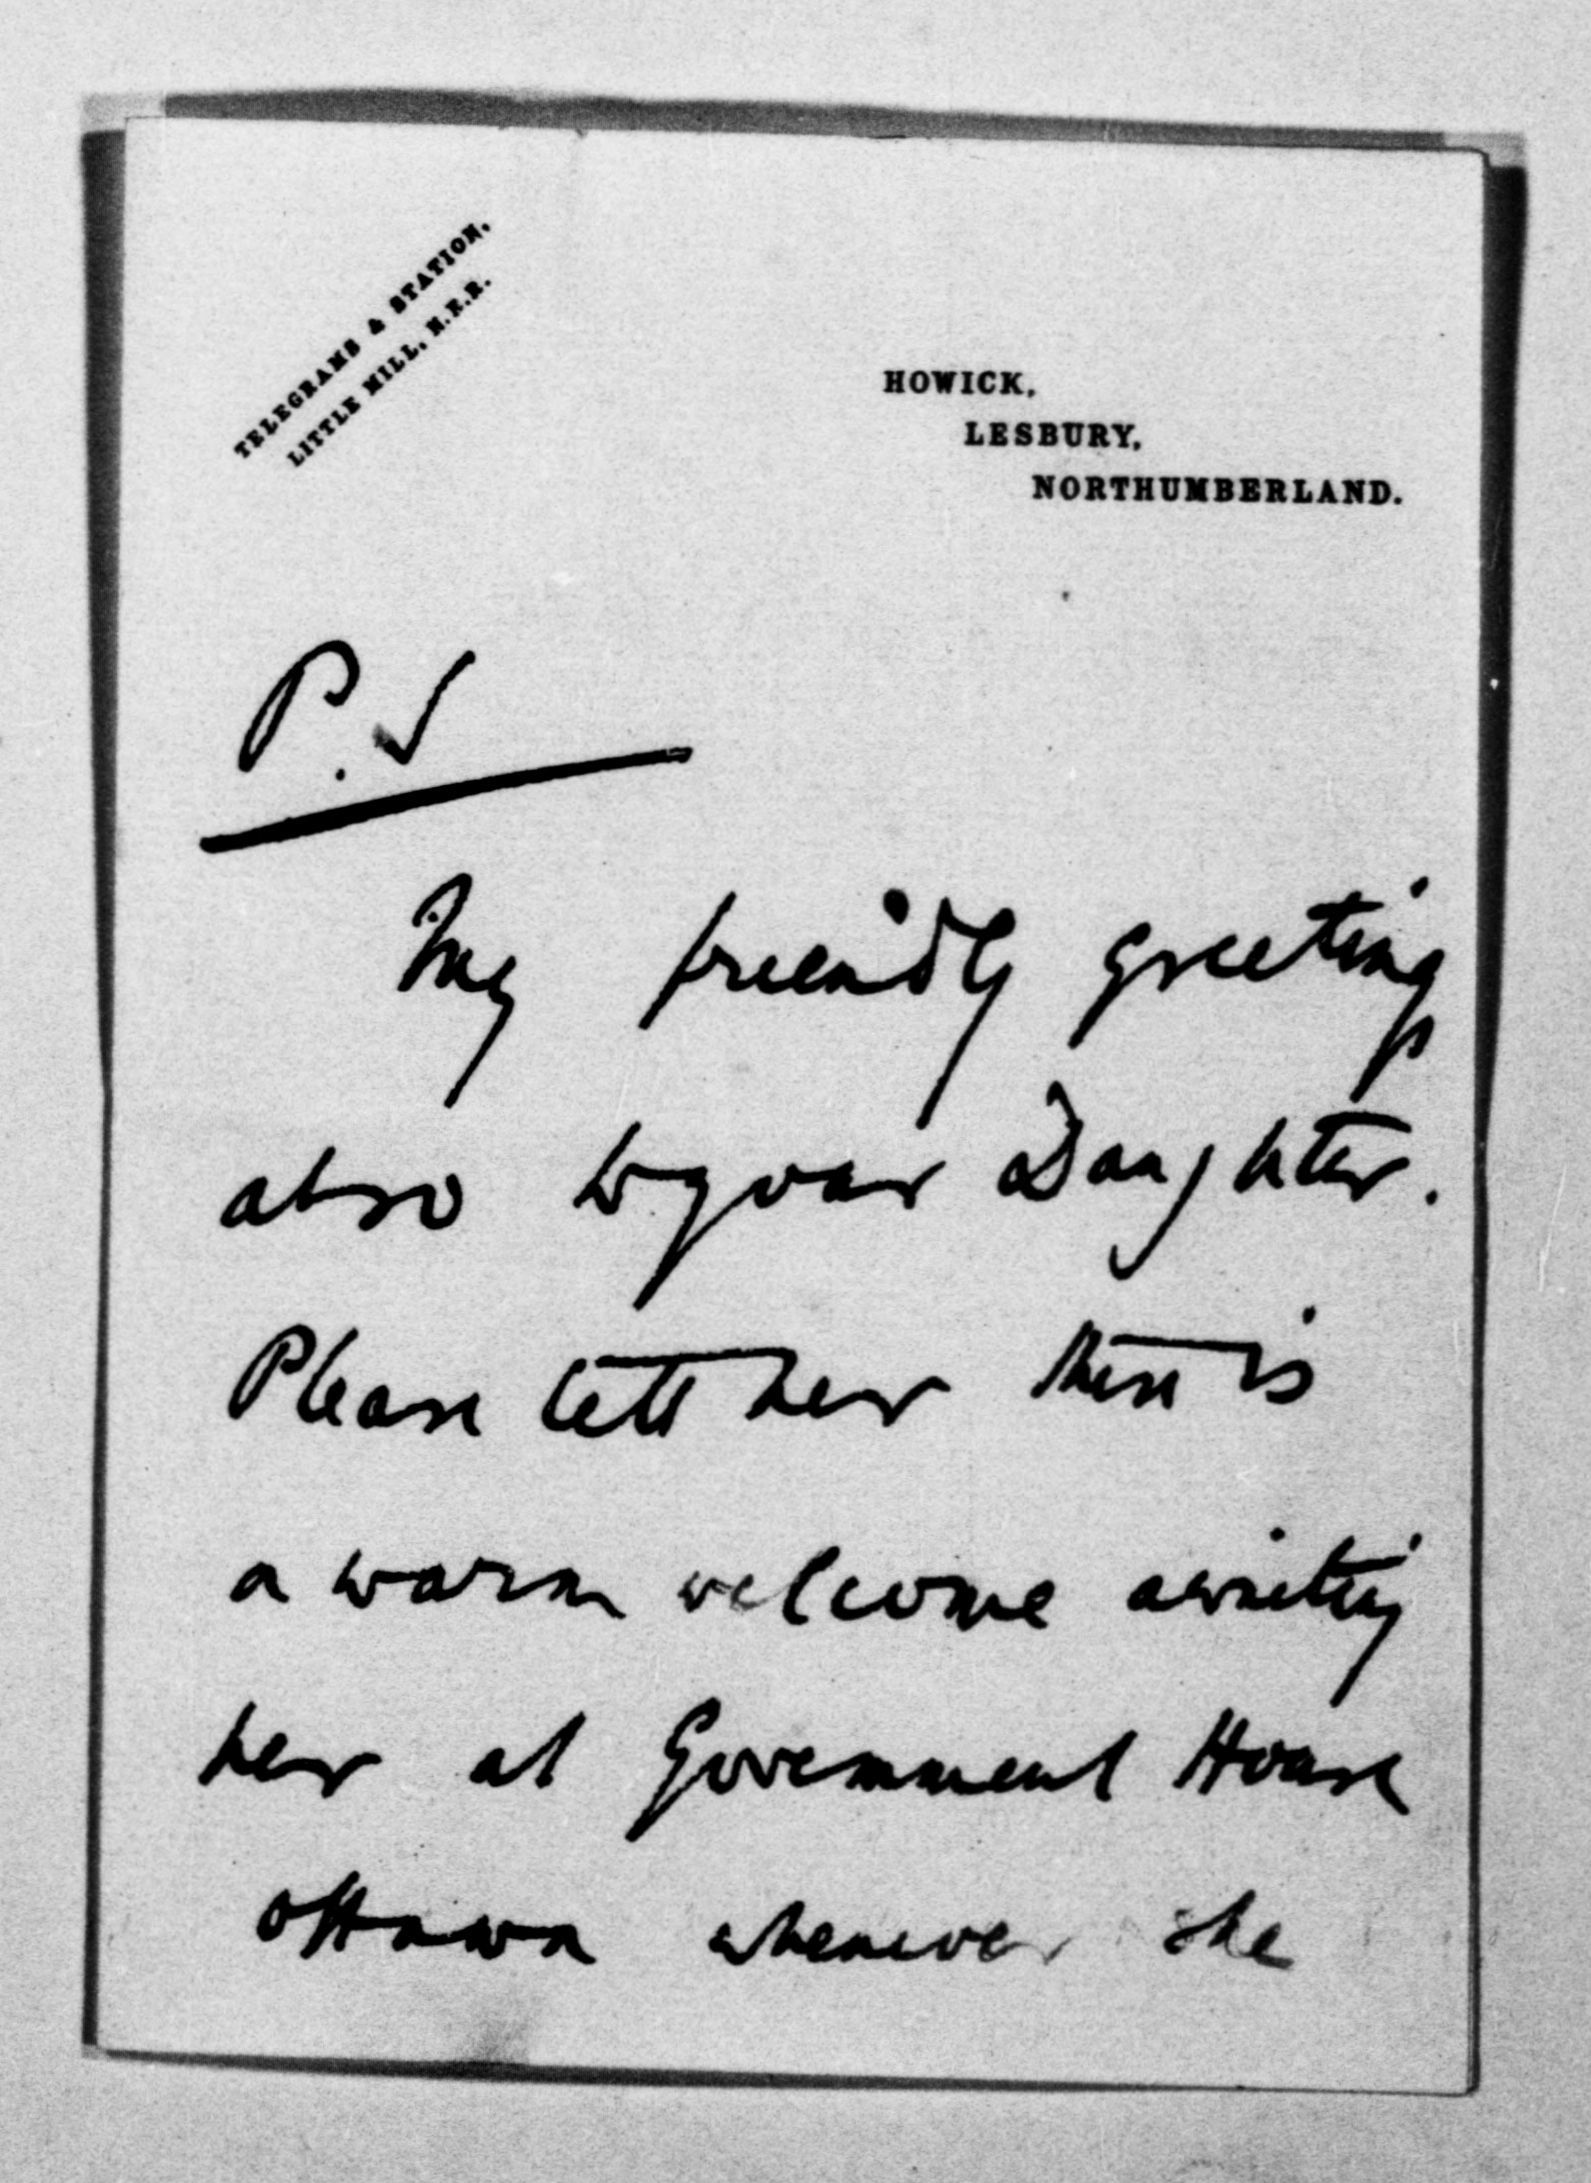 TELEGRAMS & STATION.
LITTLE MILL, N.E.R.
HOWICK,
LESBURY,
NORTHUMBERLAND.
P.S
My friendly greeting
also to your Daughter.
Please tell her there is
a warm welcome awaiting
her at Government House
Ottawa whenever she